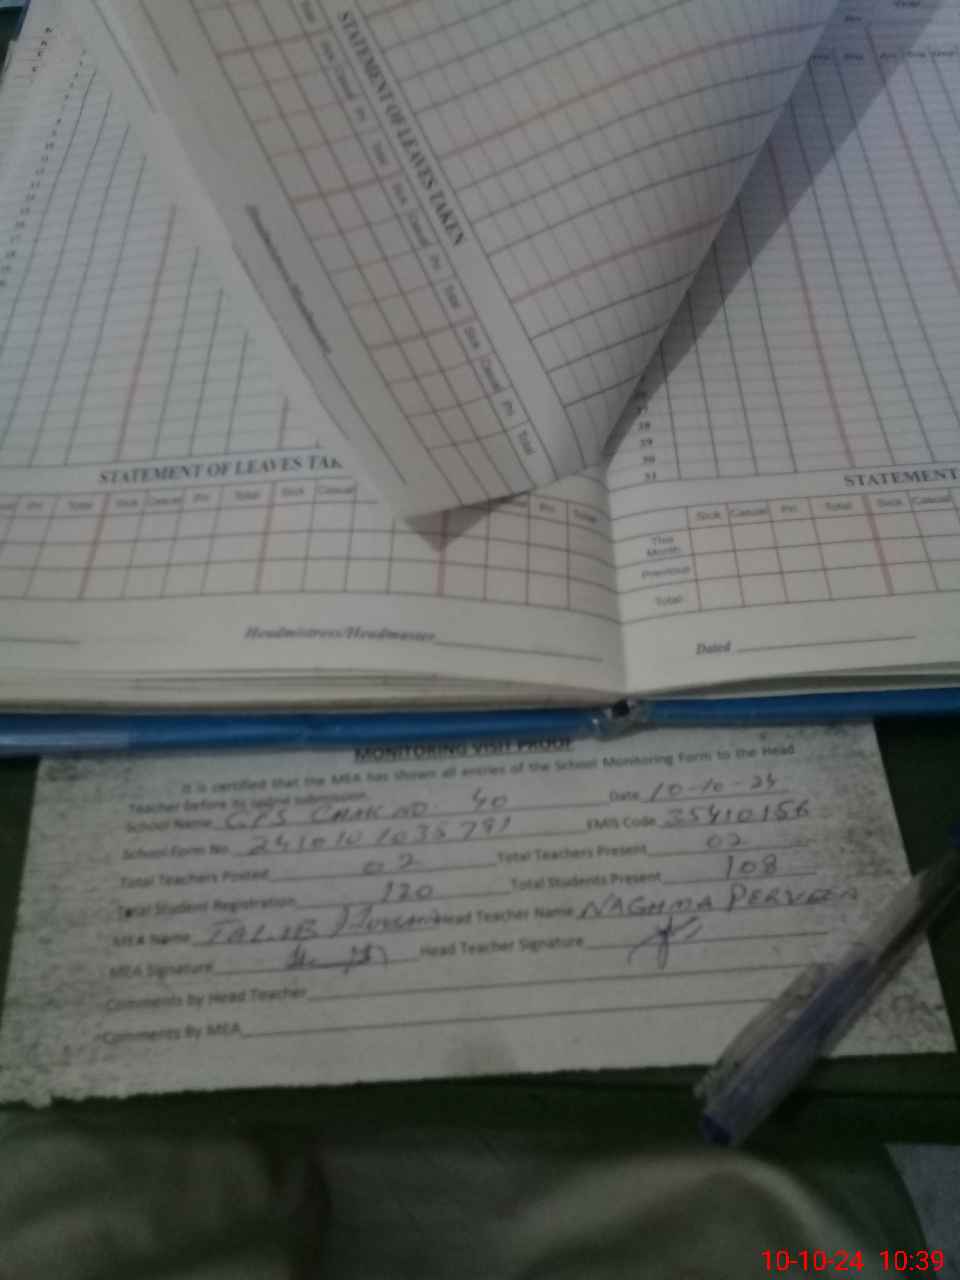 STATEMENT OF LEAVES TAKEN
Sick Casual Pri Total Sick Casual Pri Total Sick Casual Pri Total
Headmistress/Headmaster
28
29
30
31
STATEMENT OF LEAVES TAK
Pri Total Sick Casual Pri Total Sick Casual Pri Total
Headmistress/Headmaster
STATEMENT
Sick Casual Pri Total Sick Casual
This
Month
Previous
Total
Dated
MONITORING VISIT PROOF
It is certified that the MEA has shown all entries of the School Monitoring Form to the Head
Teacher before its online submission.
School Name GPS CHAK NO. 40 Date 10-10-24
School Form No. EMIS Code 35410156
Total Teachers Posted 02 Total Teachers Present 02
Total Student Registration 120 Total Students Present 108
MEA Name TALIB Hussain Head Teacher Name NAGHMA PERVEEN
MEA Signature Head Teacher Signature
Comments by Head Teacher
Comments By MEA
10-10-24 10:39